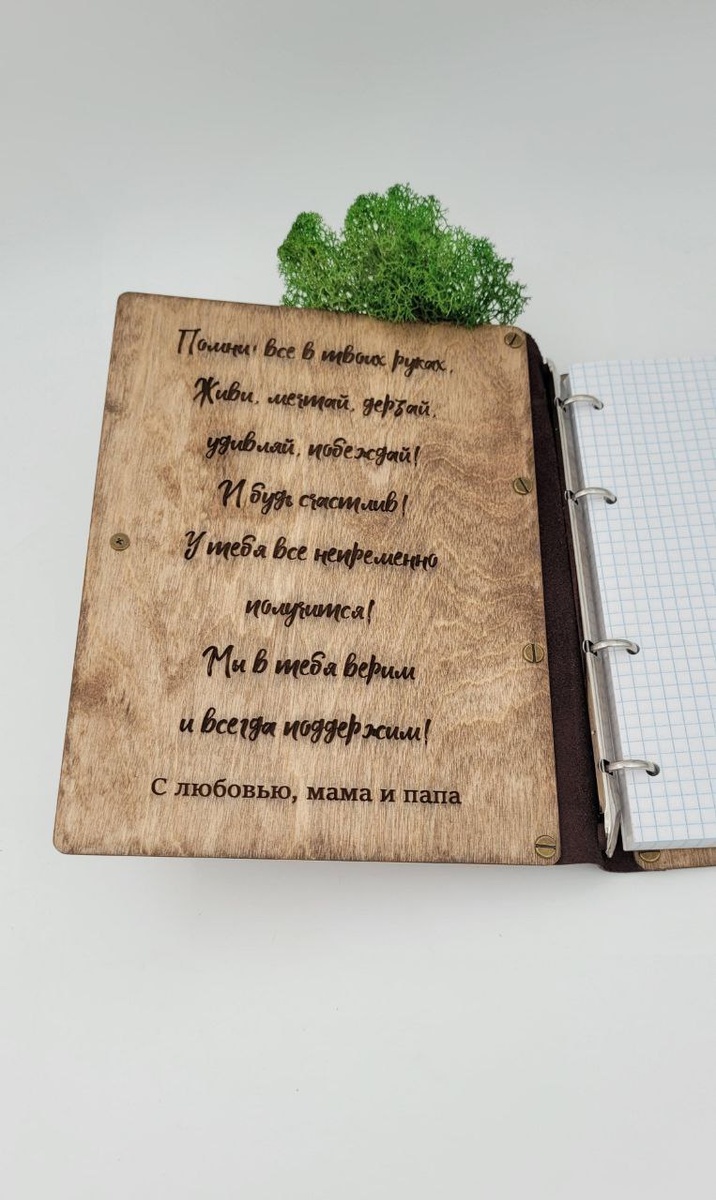 Помни: все в твоих руках.
Живи, мечтай, дерзай,
удивляй, побеждай!
И будь счастлив!
У тебя все непременно
получится!
Мы в тебя верим
и всегда поддержим!
С любовью, мама и папа